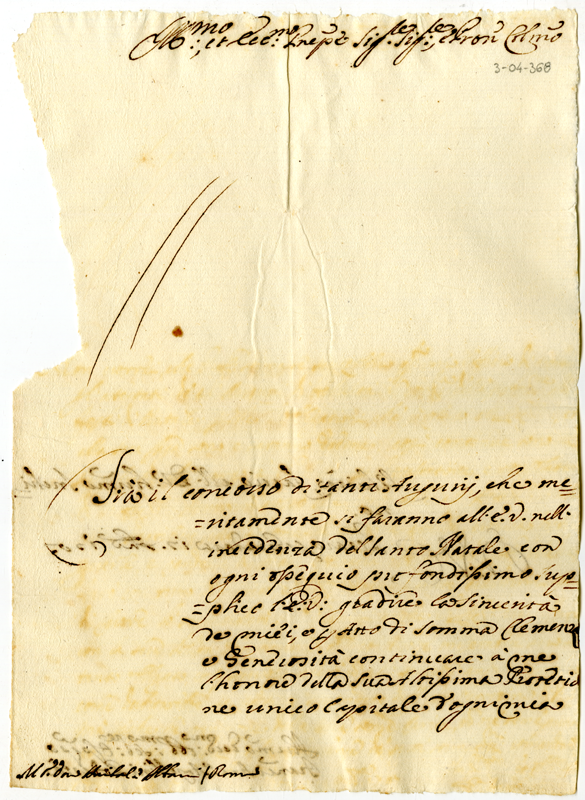 Ill:mo, et Ecc:mo Prnpe Sig:re Sig:re, e Pron Colmo
3-04-368
Fra il concorso di tanti Augurij, che me=
=ritamente si faranno all'E.V. nell'
incidenza del Santo Natale con
ogni ossequio profondissimo sup=
=plico l'E.V: gradire la sincerità
de miei, e p Atto di somma Clemenza
e Generosità continuare à me
l'honore della sua Altissima Protetio
ne unico Capitale d'ogni mia
Albani Roma